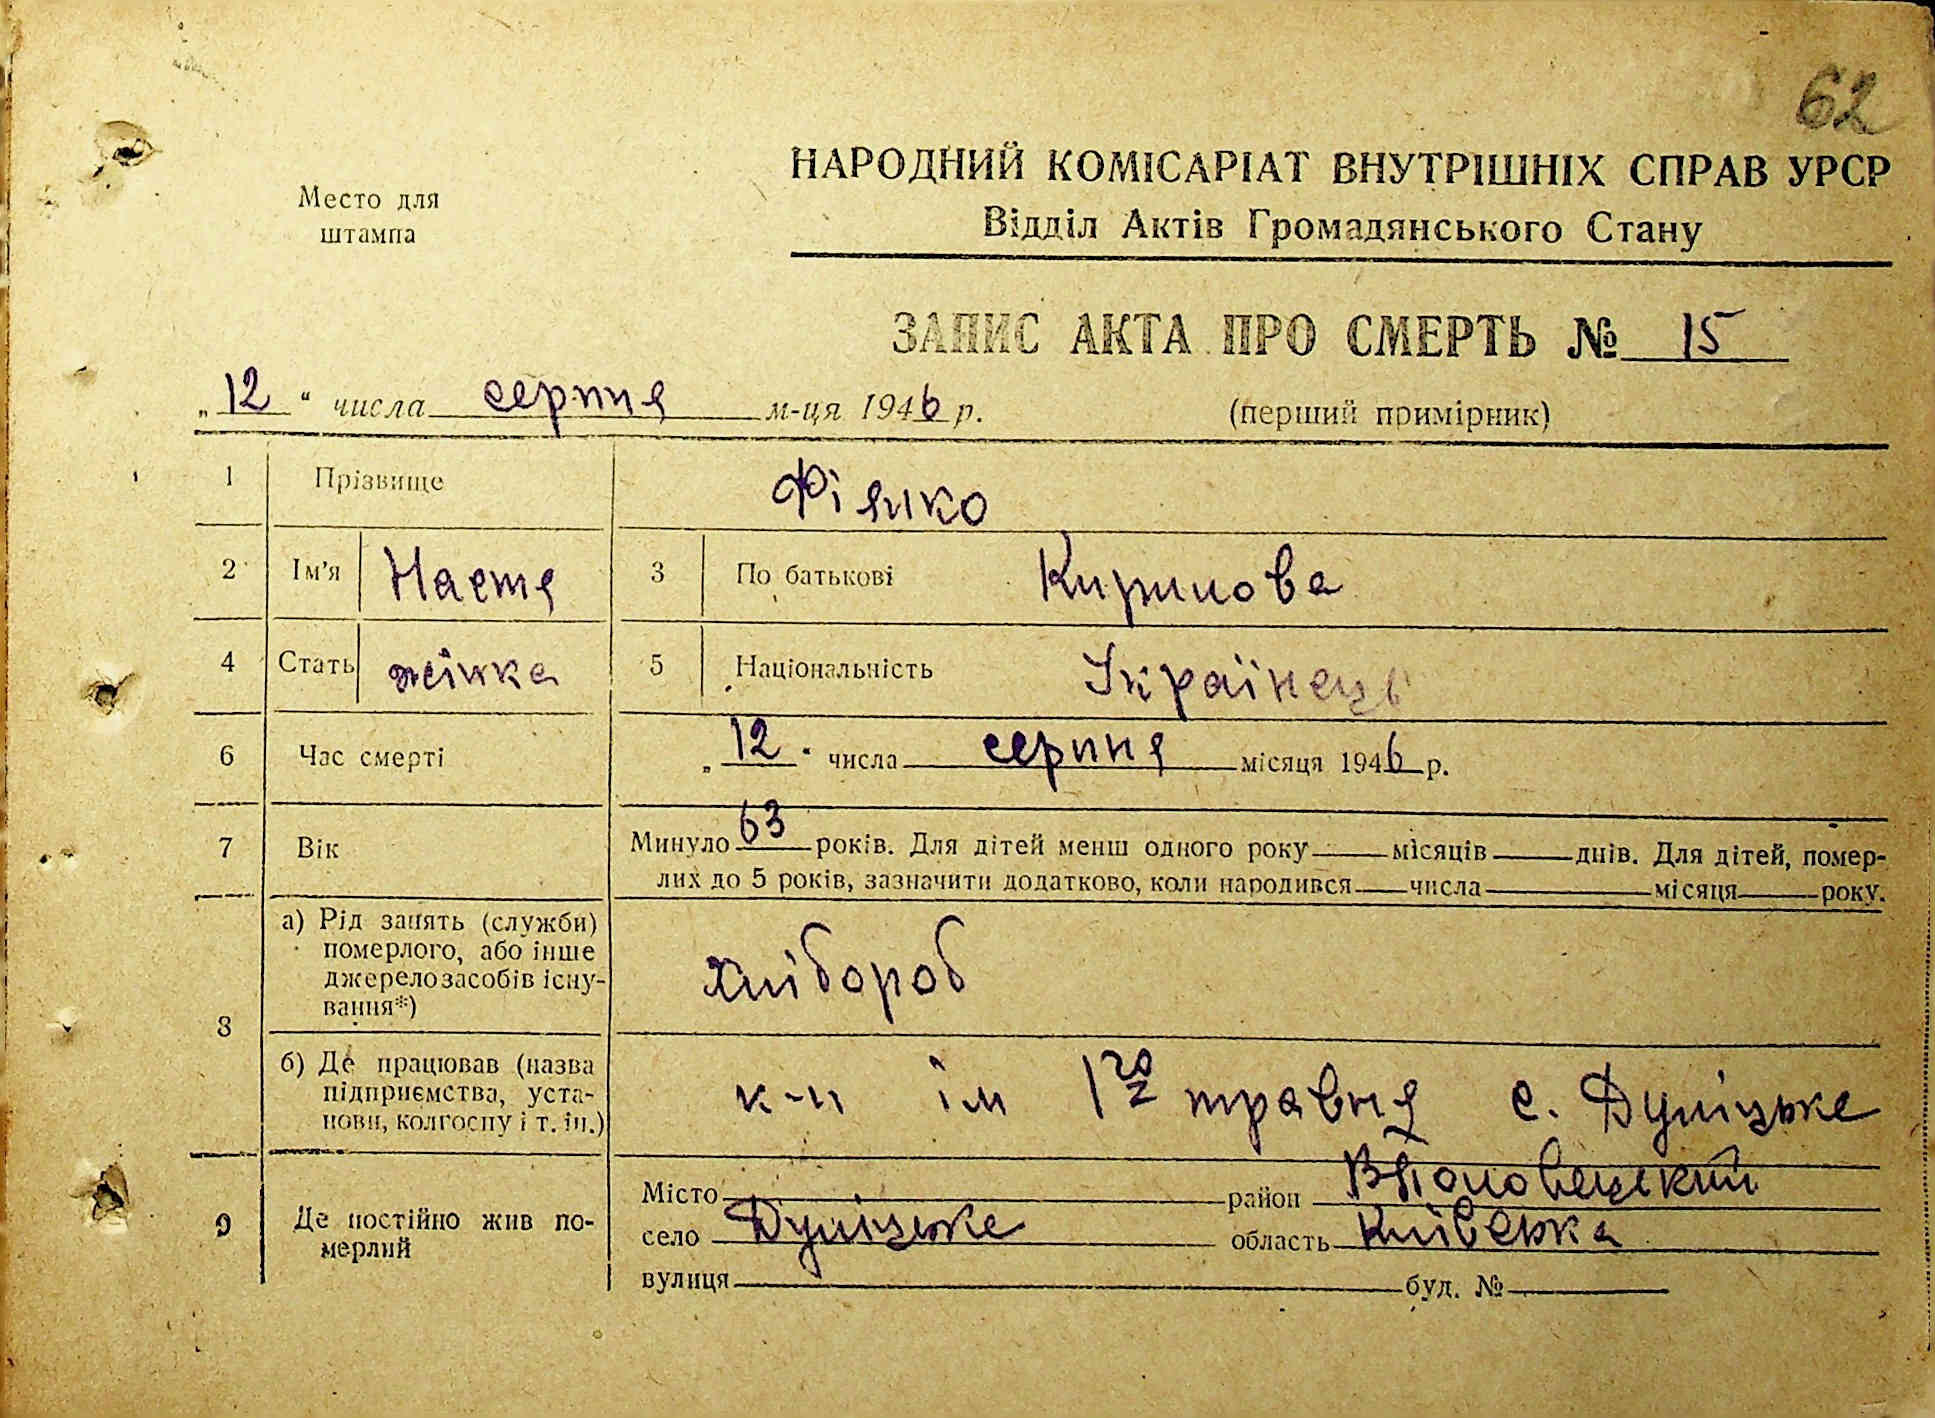 62
НАРОДНИЙ КОМІСАРІАТ ВНУТРІШНІХ СПРАВ УРСР
Место для
штампа
Відділ Актів Громадянського Стану
ЗАПИС АКТА ПРО СМЕРТЬ № 15
„12“ числа серпня м-ця 1946 р.
(перший примірник)
1 Прізвище
2 Ім'я Настя 3 По батькові Кирилова
4 Стать жінка 5 Національність Українець
6 Час смерті „12“ числа серпня місяця 1946 р.
7 Вік Минуло 63 років. Для дітей менш одного року місяців днів. Для дітей, помер-
лих до 5 років, зазначити додатково, коли народився числа місяця року.
8 а) Рід занять (служби)
померлого, або інше
джерело засобів існу-
вання*)
хлібороб
б) Де працював (назва
підприємства, уста-
нови, колгоспу і т. ін.)
к-п ім 1го травня с. Дуліцьке
9 Де постійно жив по-
мерлий
Місто район
село Дуліцьке область Київська
вулиця буд. №